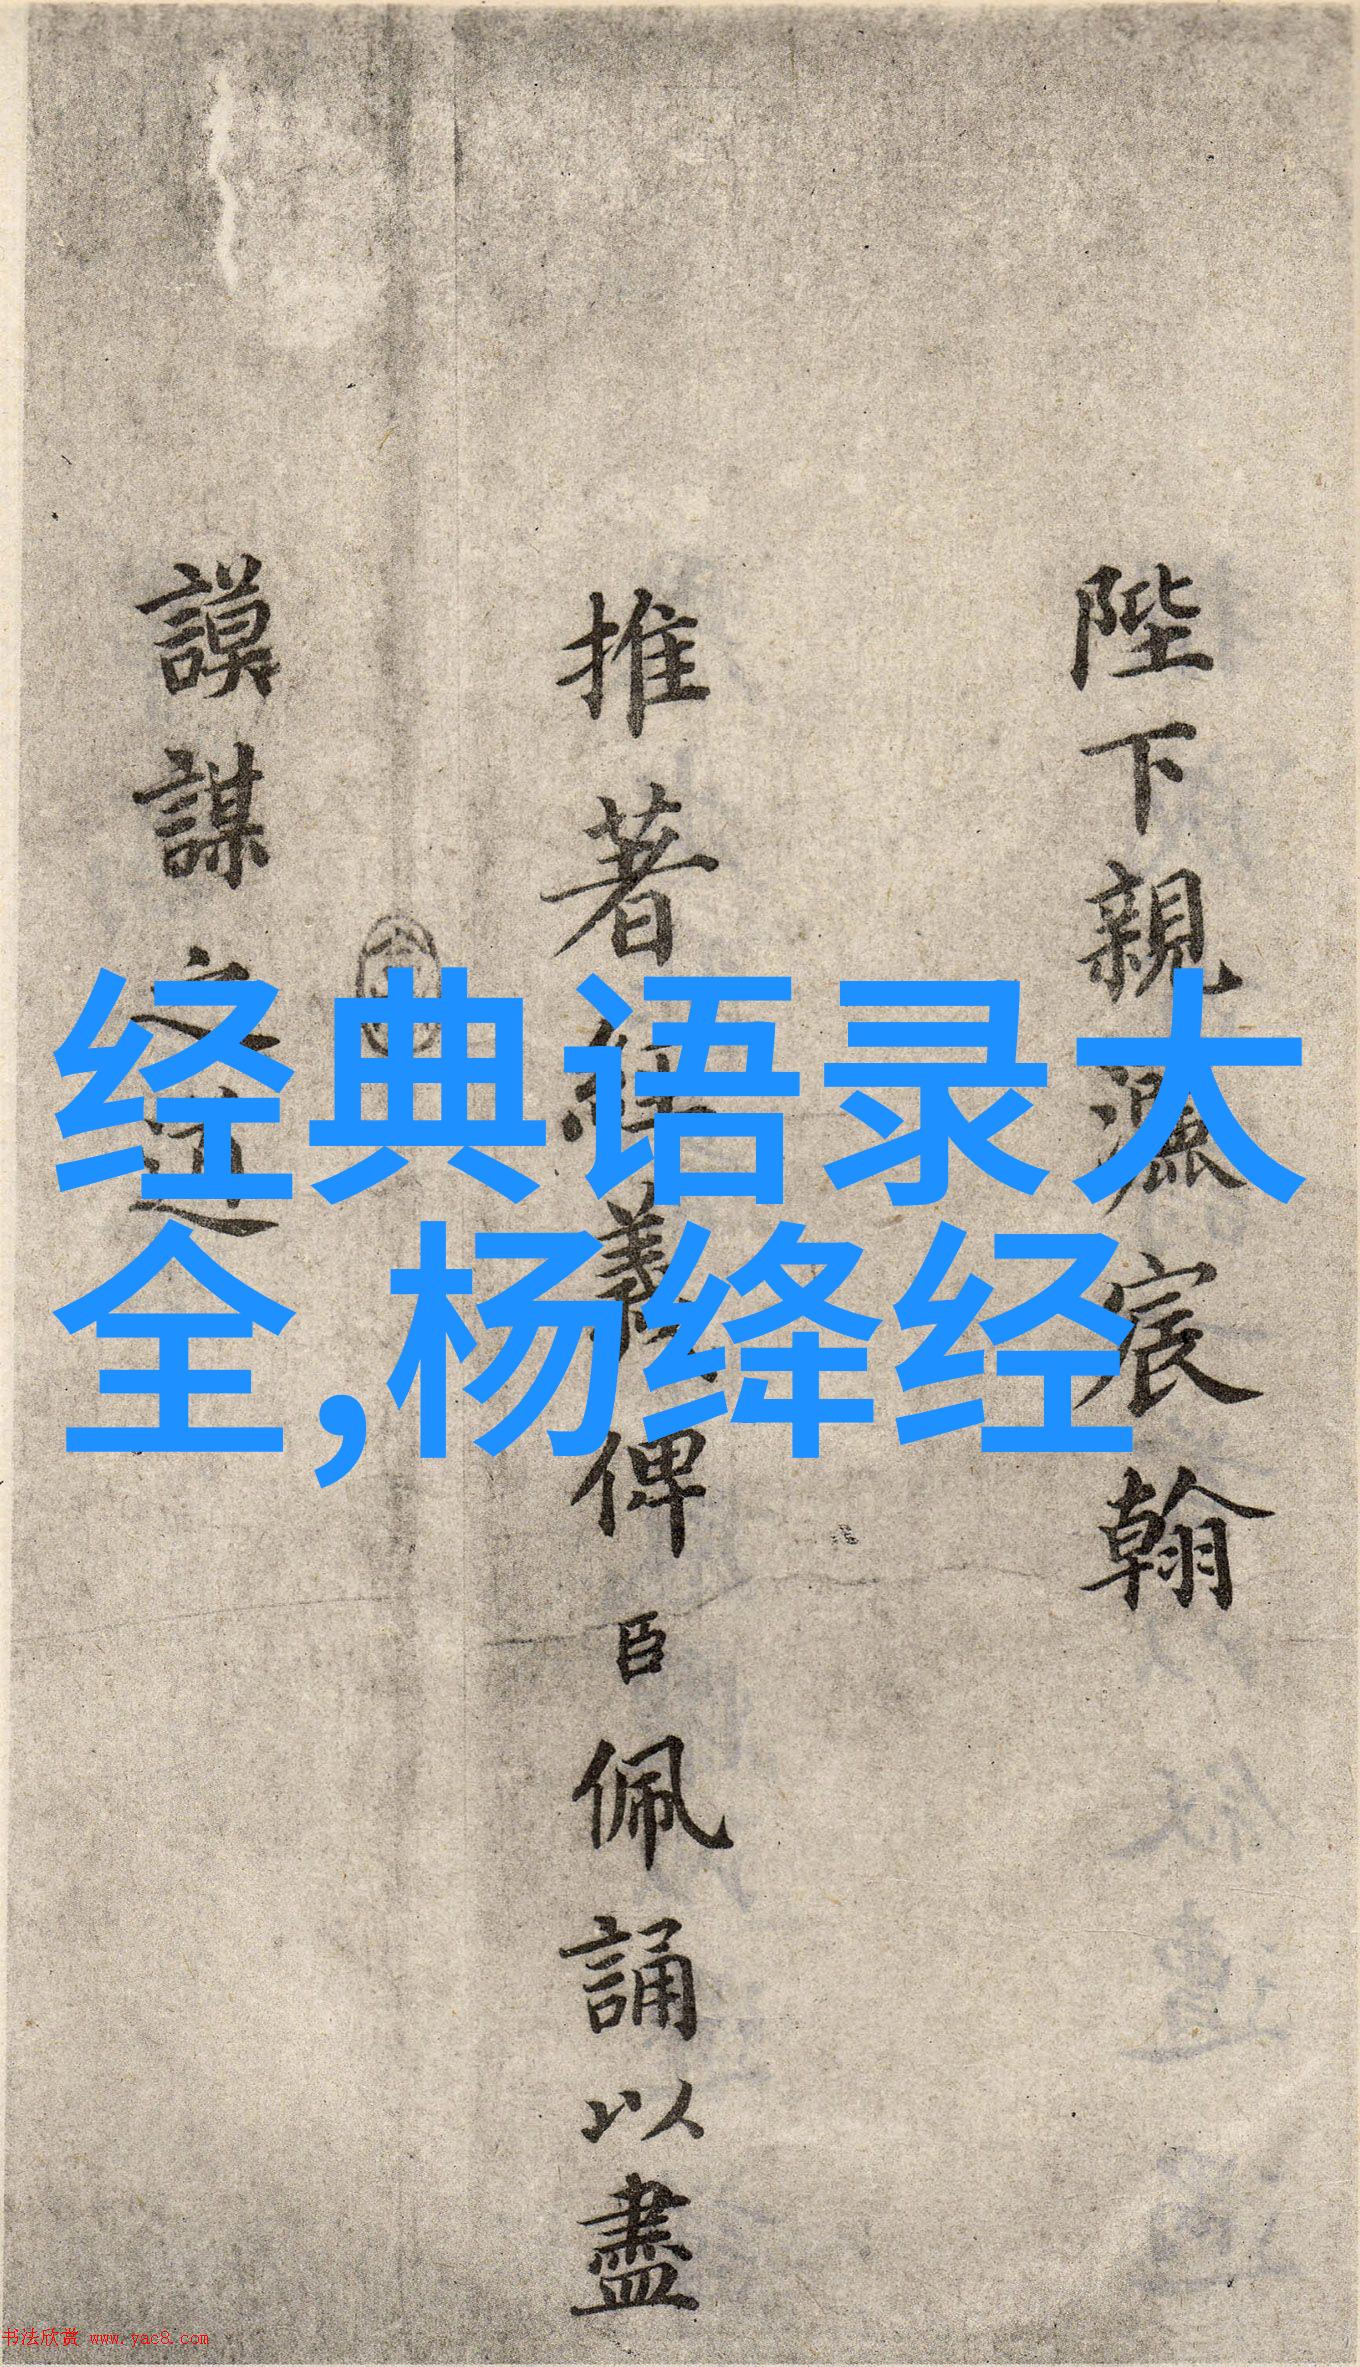 陛下親灑宸翰
推著經義俾臣佩誦以盡
謨謀之道
经典语录大
全,杨绛经
书法欣赏 www.yac8.com